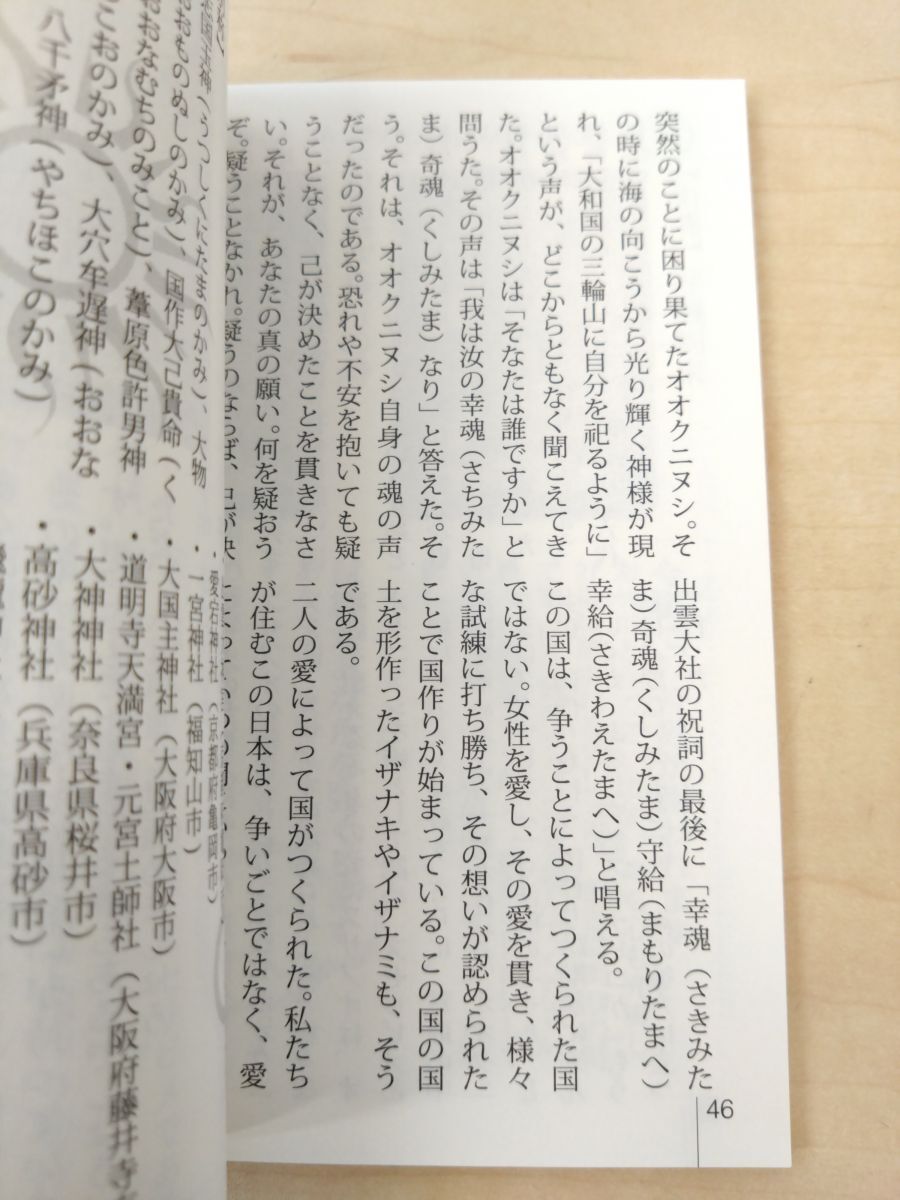 突然のことに困り果てたオオクニヌシ。そ
の時に海の向こうから光り輝く神様が現
れ、「大和国の三輪山に自分を祀るように」
という声が、どこからともなく聞こえてき
た。オオクニヌシは「そなたは誰ですか」と
問うた。その声は「我は汝の幸魂（さちみた
ま）奇魂（くしみたま）なり」と答えた。そ
う。それは、オオクニヌシ自身の魂の声
だったのである。恐れや不安を抱いても疑
うことなく、己が決めたことを貫きなさ
い。それが、あなたの真の願い。何を疑おう
ぞ。疑うことなかれ。疑うのならば、己が決
出雲大社の祝詞の最後に「幸魂（さきみた
ま）奇魂（くしみたま）守給（まもりたまへ）
幸給（さきわえたまへ）」と唱える。
この国は、争うことによってつくられた国
ではない。女性を愛し、その愛を貫き、様々
な試練に打ち勝ち、その想いが認められた
ことで国作りが始まっている。この国の国
土を形作ったイザナキやイザナミも、そう
である。
二人の愛によって国がつくられた。私たち
が住むこの日本は、争いごとではなく、愛
46
国主神（うつしくにたまのかみ）、大物
おおものぬしのかみ）、国作大己貴命（く
おおなむちのみこと）、葦原色許男神
こおのかみ）、大穴牟遅神（おおな
八千矛神（やちほこのかみ）
・愛宕神社（京都府亀岡市）
・一宮神社（福知山市）
・大国主神社（大阪府大阪市）
・道明寺天満宮・元宮土師社（大阪府藤井寺
・大神神社（奈良県桜井市）
・高砂神社（兵庫県高砂市）